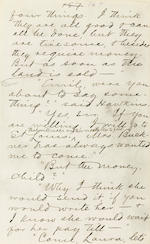 four things. I think
they are all good &
can
all be done, but they
are tiresome, & besides
they require money.
But as soon as the
land is sold
were you
about to say some-
thing?" said Hawkins.
"Yes, sir, if you
are willing. I
St. Louis. Mrs. Buck-
ner has always wanted
me to come."
"But the money,
child?"
"Why I think she
would send it, if you
would write her—&
I know she would wait
for her pay till—"
"Come, Laura, let's